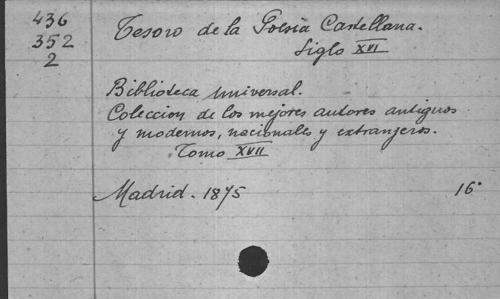 436
352
2
Tesoro de la Poesía Castellana.
Siglo XVI
Biblioteca universal.
Coleccion de los mejores autores antiguos
y modernos, nacionales y extranjeros.
Tomo XVII
Madrid. 1875
16°